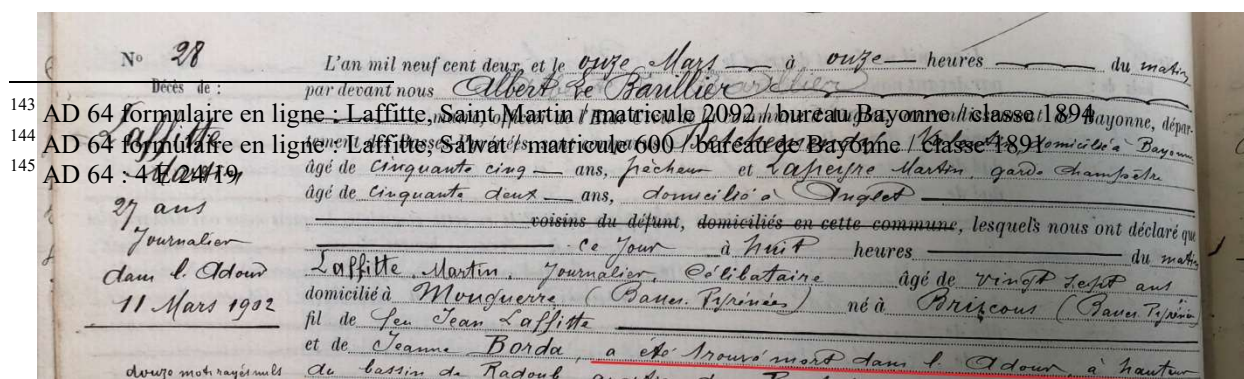 N° 28
Décès de :
Laffitte
Martin
27 ans
Journalier
dans l'Adour
11 Mars 1902
douze mots rayés nuls
L'an mil neuf cent deux, et le onze Mars à onze heures du matin
par devant nous Albert Le Barillier
143 AD 64 formulaire en ligne : Laffitte, Saint Martin / matricule 2092 / bureau Bayonne / classe 1894
Bayonne, dépar-
144 AD 64 formulaire en ligne : Laffitte, Salvat / matricule 600 / bureau de Bayonne / classe 1891
domicilié à Bayonne
145 AD 64 : 4 E 24/19
âgé de Cinquante cinq ans, pêcheur et Martin, garde Champêtre
âgé de Cinquante deux ans, domicilié à Anglet
voisins du défunt, domiciliés en cette commune, lesquels nous ont déclaré que
ce jour à huit heures du matin
Laffitte, Martin, Journalier, Célibataire âgé de vingt sept ans
domicilié à Mouguerre (Basses Pyrénées) né à Briscous (Basses Pyrénées)
fil de feu Jean Laffitte
et de Jeanne Borda, a été trouvé mort dans l'Adour, à hauteur
du bassin de Radoub